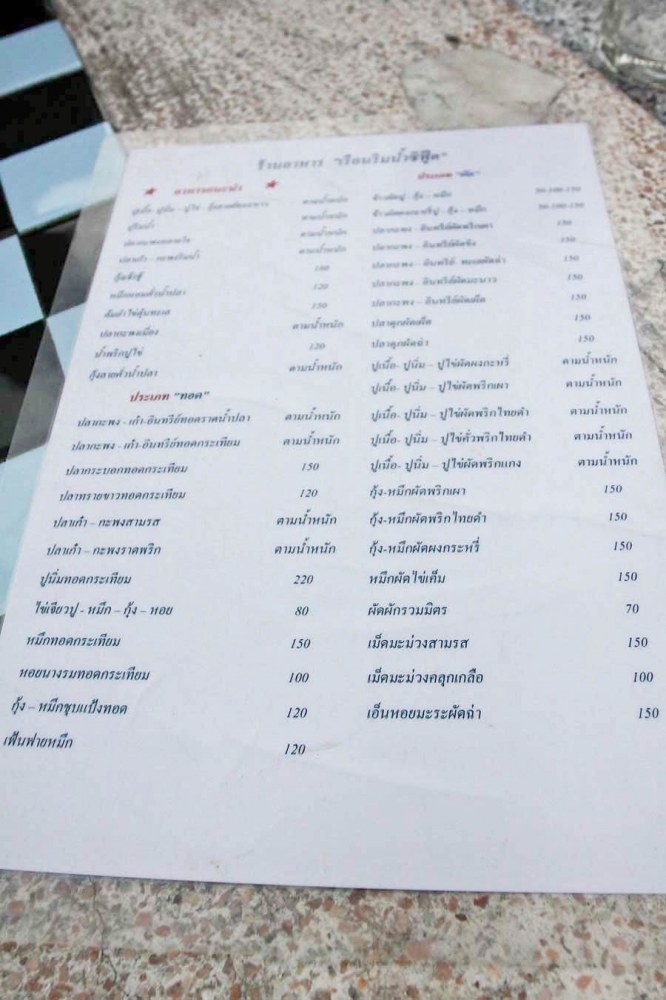 ร้านอาหาร "เรือนริมน้ำซีฟู๊ด"
อาหารแนะนำ
ตามน้ำหนัก
ปูริมน้ำ ตามน้ำหนัก
ตามน้ำหนัก
ตามน้ำหนัก
กุ้งซู่ซู่ 100
หมึกแดดเดียวน้ำปลา 120
150
ปลากะพงเมี่ยง ตามน้ำหนัก
น้ำพริกปูไข่ 120
กุ้งลายคั่วน้ำปลา ตามน้ำหนัก
ประเภท "ทอด"
ปลากะพง - เก๋า-อินทรีย์ทอดราดน้ำปลา ตามน้ำหนัก
ปลากะพง - เก๋า-อินทรีย์ทอดกระเทียม ตามน้ำหนัก
ปลากระบอกทอดกระเทียม 150
ปลาทรายขาวทอดกระเทียม 120
ปลาเก๋า – กะพงสามรส ตามน้ำหนัก
ปลาเก๋า – กะพงราดพริก ตามน้ำหนัก
ปูนิ่มทอดกระเทียม 220
ไข่เจียวปู - หมึก – กุ้ง – หอย 80
หมึกทอดกระเทียม 150
หอยนางรมทอดกระเทียม 100
กุ้ง – หมึกชุบแป้งทอด 120
เฟ้นฟายหมึก 120
ประเภท "ผัด"
ข้าวผัดปู - กุ้ง - หมึก 50-100-150
50-100-150
ปลากะพง - อินทรีย์ผัดพริกเผา 150
ปลากะพง - อินทรีย์ผัดขิง 150
ปลากะพง - อินทรีย์- ทะเลผัดฉ่า 150
ปลากะพง - อินทรีย์ผัดมะนาว 150
ปลากะพง – อินทรีย์ผัดเผ็ด 150
ปลาดุกผัดเผ็ด 150
ปลาดุกผัดฉ่า 150
ปูเนื้อ- ปูนิ่ม – ปูไข่ผัดผงกะหรี่ ตามน้ำหนัก
ปูเนื้อ- ปูนิ่ม – ปูไข่ผัดพริกเผา ตามน้ำหนัก
ปูเนื้อ- ปูนิ่ม – ปูไข่ผัดพริกไทยดำ ตามน้ำหนัก
ปูเนื้อ- ปูนิ่ม – ปูไข่คั่วพริกไทยดำ ตามน้ำหนัก
ปูเนื้อ- ปูนิ่ม – ปูไข่ผัดพริกแกง ตามน้ำหนัก
กุ้ง-หมึกผัดพริกเผา 150
กุ้ง-หมึกผัดพริกไทยดำ 150
กุ้ง-หมึกผัดผงกระหรี่ 150
หมึกผัดไข่เค็ม 150
ผัดผักรวมมิตร 70
เม็ดมะม่วงสามรส 150
เม็ดมะม่วงคลุกเกลือ 100
เอ็นหอยมะระผัดฉ่า 150